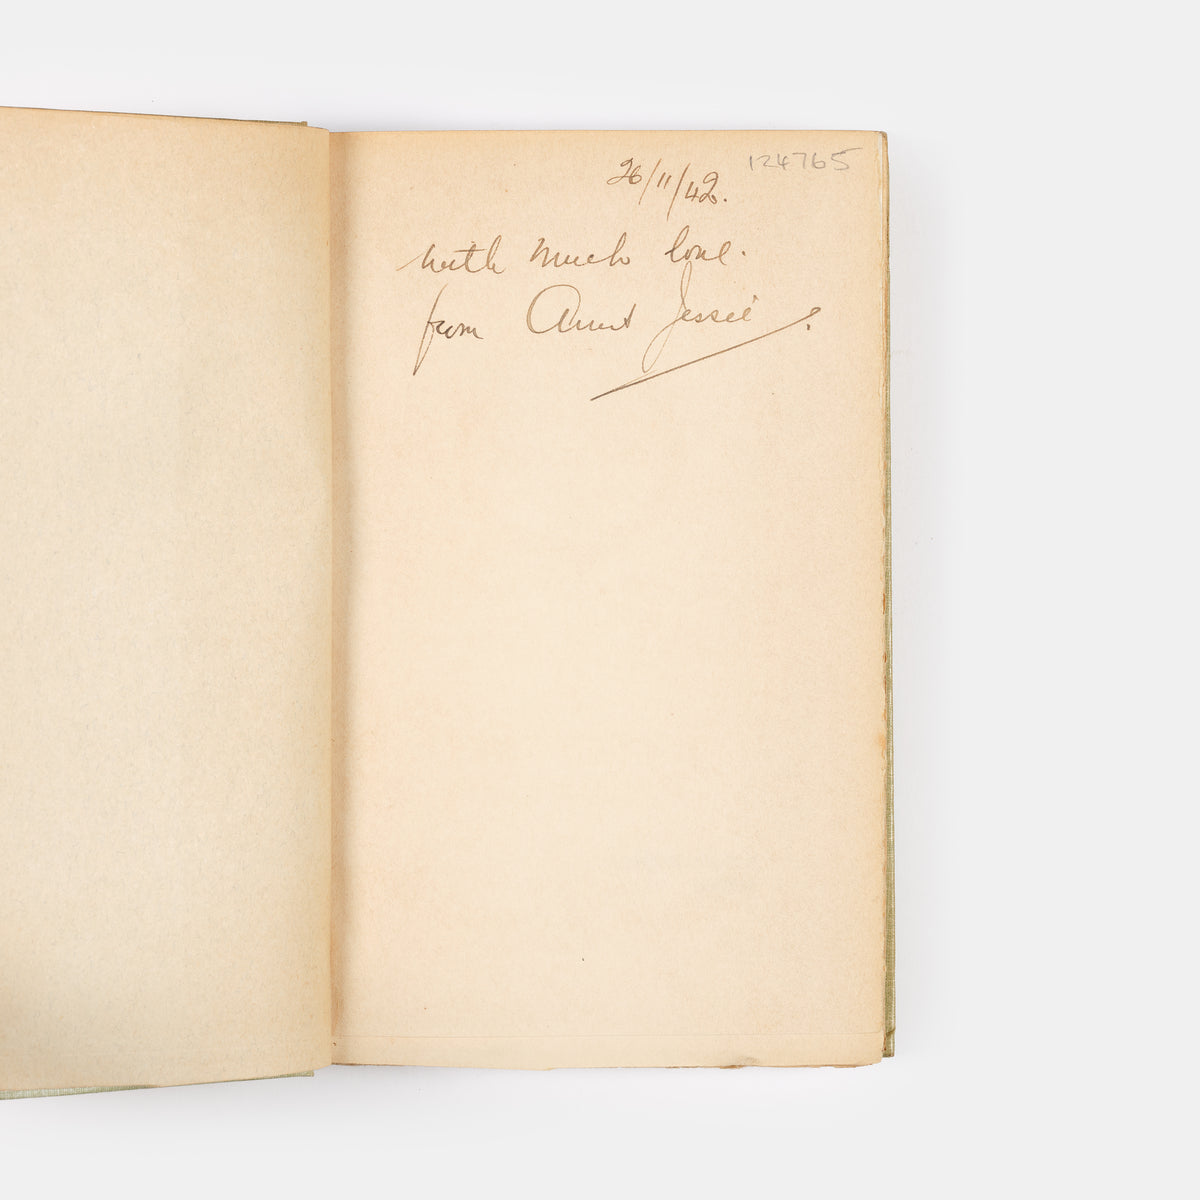 26/11/42.
124765
with much love.
from Aunt Jessie.